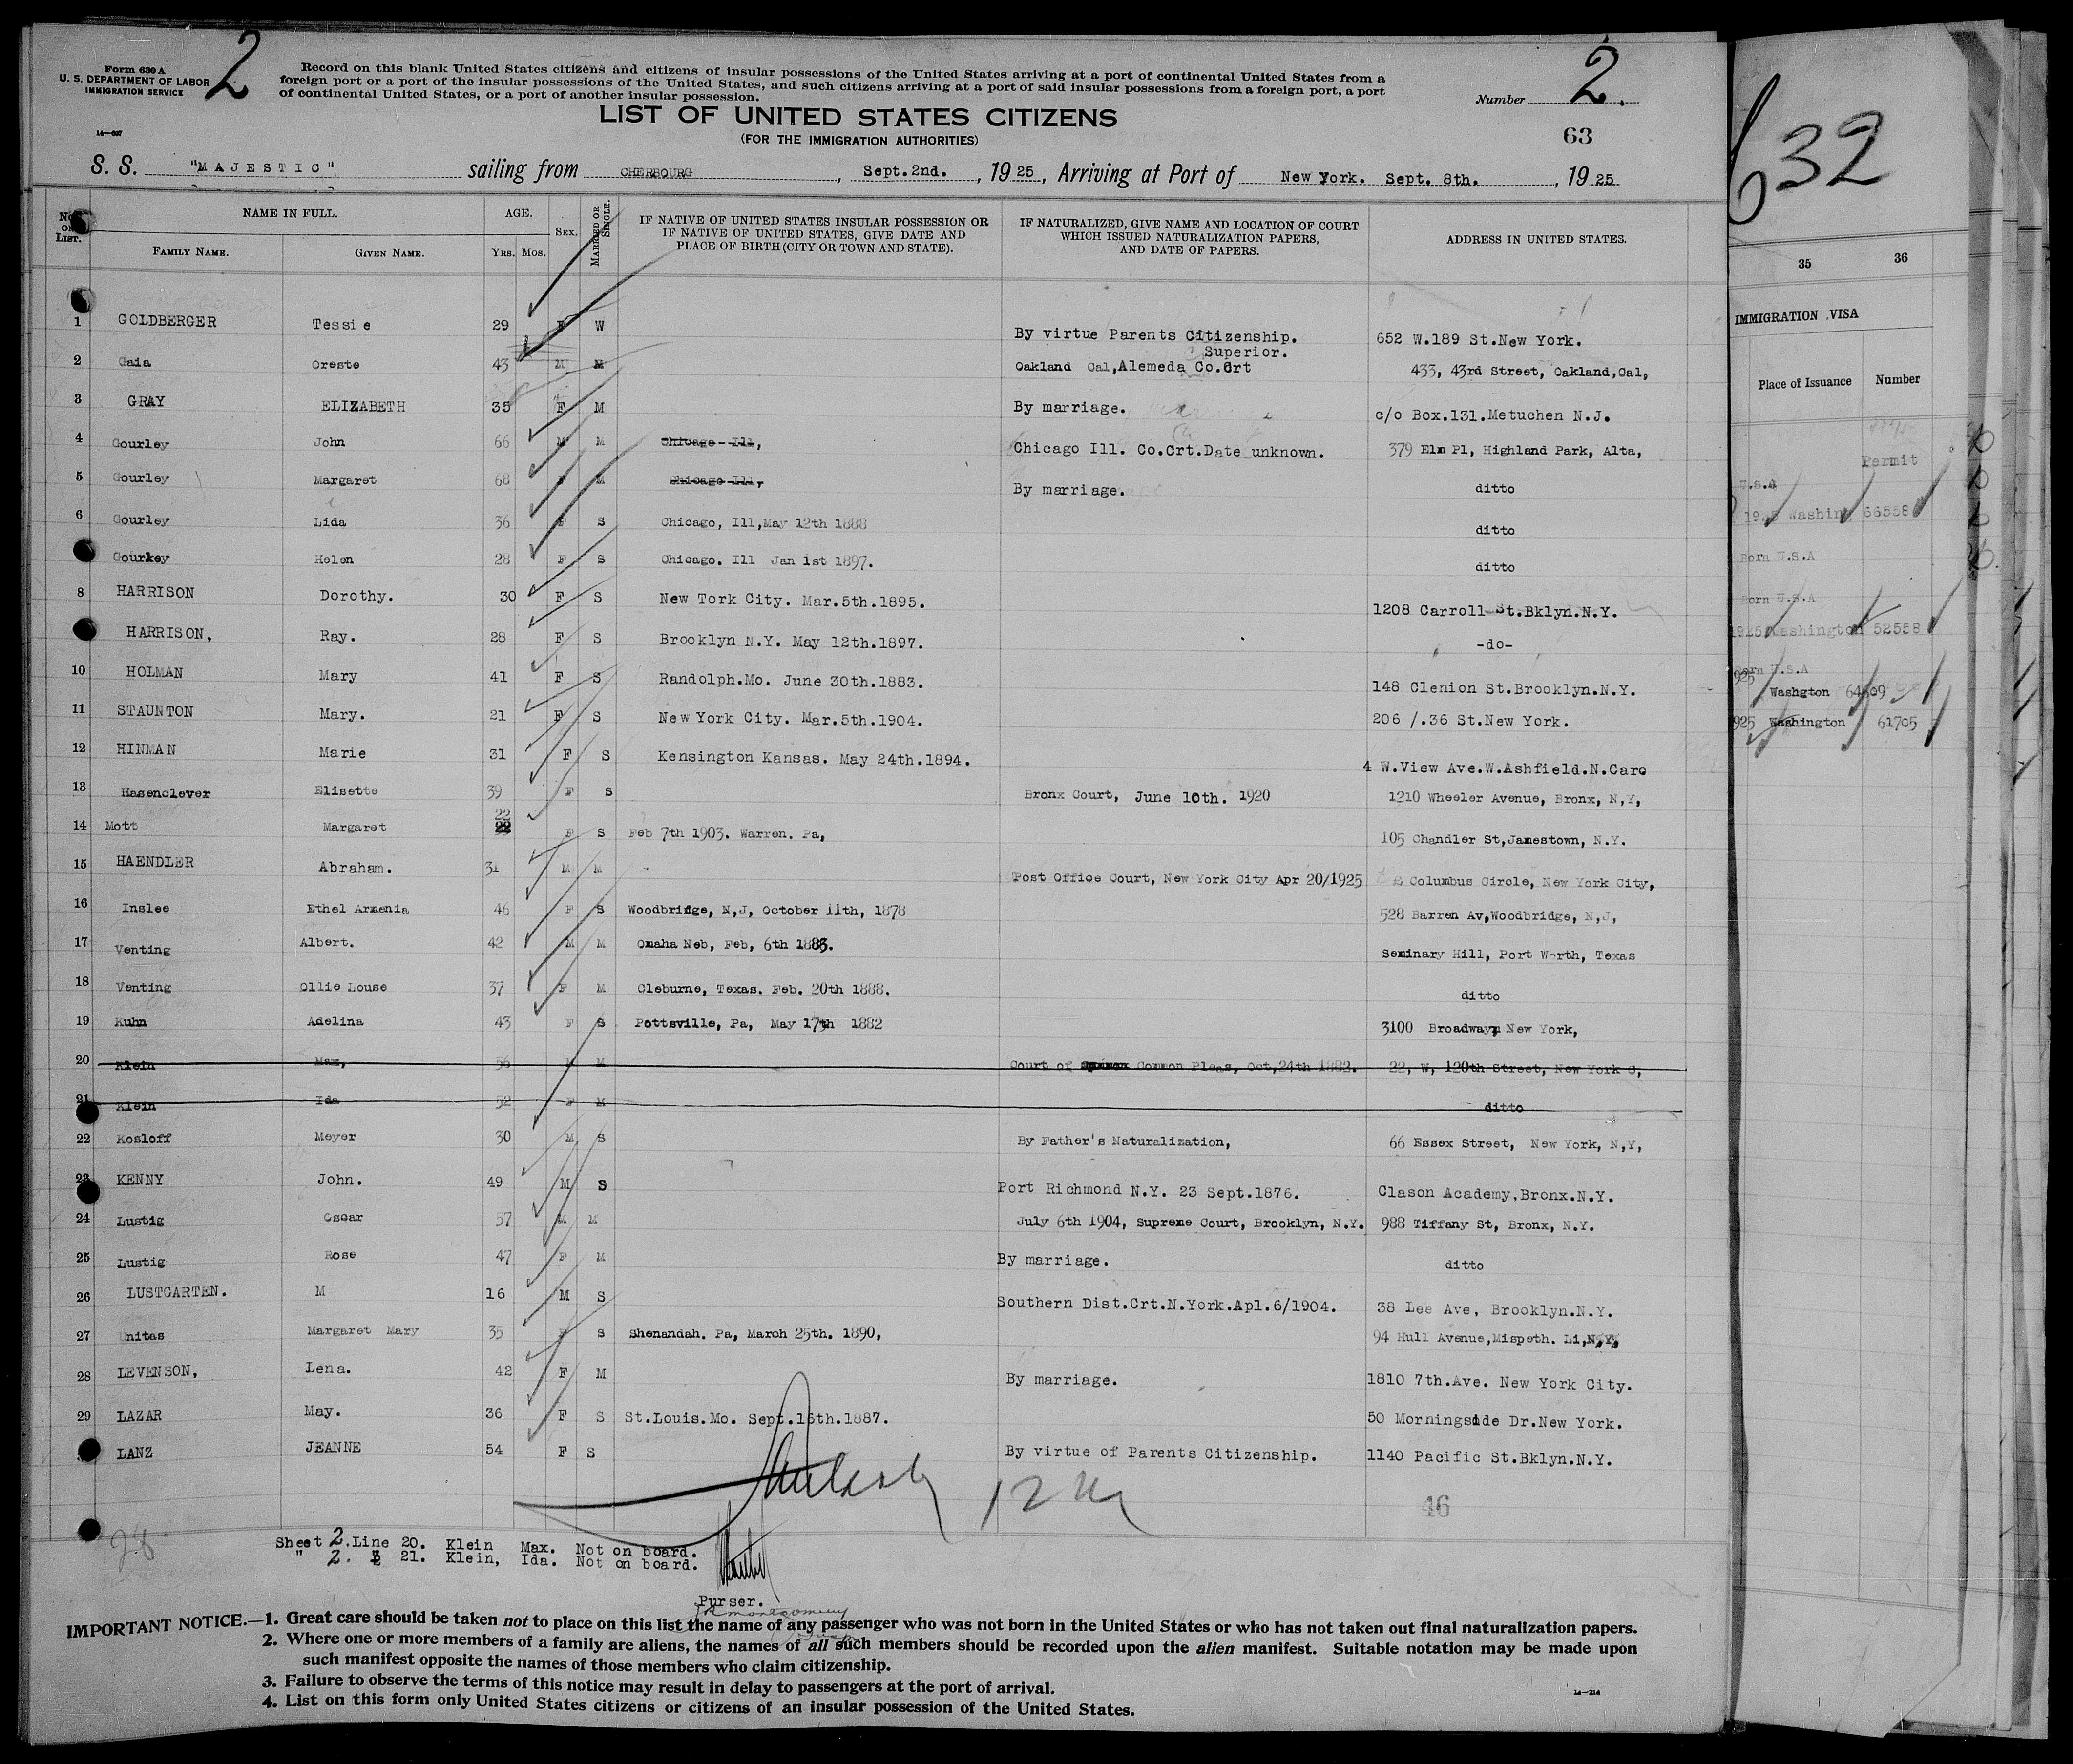 Form 630 A
U. S. DEPARTMENT OF LABOR
IMMIGRATION SERVICE
14—607
2
Record on this blank United States citizens and citizens of insular possessions of the United States arriving at a port of continental United States from a
foreign port or a port of the insular possessions of the United States, and such citizens arriving at a port of said insular possessions from a foreign port, a port
of continental United States, or a port of another insular possession.
Number 2.
LIST OF UNITED STATES CITIZENS
(FOR THE IMMIGRATION AUTHORITIES)
63
S. S. "MAJESTIC" sailing from CHERBOURG, Sept. 2nd., 1925, Arriving at Port of New York. Sept. 8th., 1925
No. ON LIST. NAME IN FULL. AGE. SEX. MARRIED OR SINGLE. IF NATIVE OF UNITED STATES INSULAR POSSESSION OR IF NATIVE OF UNITED STATES, GIVE DATE AND PLACE OF BIRTH (CITY OR TOWN AND STATE). IF NATURALIZED, GIVE NAME AND LOCATION OF COURT WHICH ISSUED NATURALIZATION PAPERS, AND DATE OF PAPERS. ADDRESS IN UNITED STATES.
FAMILY NAME. GIVEN NAME. YRS. MOS.
1 GOLDBERGER Tessie 29 F W By virtue Parents Citizenship. 652 W.189 St.New York.
2 Gaia Oreste 43 M M Oakland Cal,Alemeda Co.Crt Superior. 433, 43rd Street, Oakland,Cal,
3 GRAY ELIZABETH 35 F M By marriage. c/o Box.131.Metuchen N.J.
4 Gourley John 66 M M Chicago Ill, Chicago Ill. Co.Crt.Date unknown. 379 Elm Pl, Highland Park, Alta,
5 Gourley Margaret 68 F M Chicago Ill, By marriage. ditto
6 Gourley Lida 36 F S Chicago, Ill,May 12th 1888 ditto
Gourkey Helen 28 F S Chicago. Ill Jan 1st 1897. ditto
8 HARRISON Dorothy. 30 F S New Tork City. Mar.5th.1895. 1208 Carroll St.Bklyn.N.Y.
HARRISON, Ray. 28 F S Brooklyn N.Y. May 12th.1897. -do-
10 HOLMAN Mary 41 F S Randolph.Mo. June 30th.1883. 148 Clenion St.Brooklyn.N.Y.
11 STAUNTON Mary. 21 F S New York City. Mar.5th.1904. 206 /.36 St.New York.
12 HINMAN Marie 31 F S Kensington Kansas. May 24th.1894. 4 W.View Ave.W.Ashfield.N.Caro
13 Hasenclever Elisette 39 F S Bronx Court, June 10th. 1920 1210 Wheeler Avenue, Bronx, N,Y,
14 Mott Margaret 22 F S Feb 7th 1903. Warren. Pa, 105 Chandler St,Jamestown, N.Y.
15 HAENDLER Abraham. 31 M M Post Office Court, New York City Apr 20/1925 Columbus Circle, New York City,
16 Inslee Ethel Armenia 46 F S Woodbridge, N,J, October 11th, 1878 528 Barren Av,Woodbridge, N,J,
17 Venting Albert. 42 M M Omaha Neb, Feb, 6th 1883. Seminary Hill, Port Worth, Texas
18 Venting Ollie Louse 37 F M Cleburne, Texas. Feb. 20th 1888. ditto
19 Kuhn Adelina 43 F S Pottsville, Pa, May 17th 1882 3100 Broadway, New York,
20 Klein Max, 56 M M Court of Common Pleas, Oct,24th 1882. 22, W, 120th Street, New York C,
21 Klein Ida 52 F M ditto
22 Kosloff Meyer 30 M S By Father's Naturalization, 66 Essex Street, New York, N,Y,
23 KENNY John. 49 M S Port Richmond N.Y. 23 Sept.1876. Clason Academy,Bronx.N.Y.
24 Lustig Oscar 57 M M July 6th 1904, Supreme Court, Brooklyn, N.Y. 988 Tiffany St, Bronx, N.Y.
25 Lustig Rose 47 F M By marriage. ditto
26 LUSTGARTEN. M 16 M S Southern Dist.Crt.N.York.Apl.6/1904. 38 Lee Ave, Brooklyn.N.Y.
27 Unitas Margaret Mary 35 F S Shenandah. Pa, March 25th. 1890, 94 Hull Avenue,Mispeth. Li,N,Y,
28 LEVENSON, Lena. 42 F M By marriage. 1810 7th.Ave. New York City.
29 LAZAR May. 36 F S St.Louis.Mo. Sept.15th.1887. 50 Morningside Dr.New York.
LANZ JEANNE 54 F S By virtue of Parents Citizenship. 1140 Pacific St.Bklyn.N.Y.
46
28
Sheet 2.Line 20. Klein Max. Not on board.
" 2. 21. Klein, Ida. Not on board.
Purser.
IMPORTANT NOTICE.—1. Great care should be taken not to place on this list the name of any passenger who was not born in the United States or who has not taken out final naturalization papers.
2. Where one or more members of a family are aliens, the names of all such members should be recorded upon the alien manifest. Suitable notation may be made upon
such manifest opposite the names of those members who claim citizenship.
3. Failure to observe the terms of this notice may result in delay to passengers at the port of arrival.
4. List on this form only United States citizens or citizens of an insular possession of the United States.
14—214
632
35 36
IMMIGRATION VISA
Place of Issuance Number
Permit
U.S.A
1925 Washing 66558
Born U.S.A
Born U.S.A
1925 Washington 52558
Born U.S.A
925 Washgton 64509
925 Washington 61705